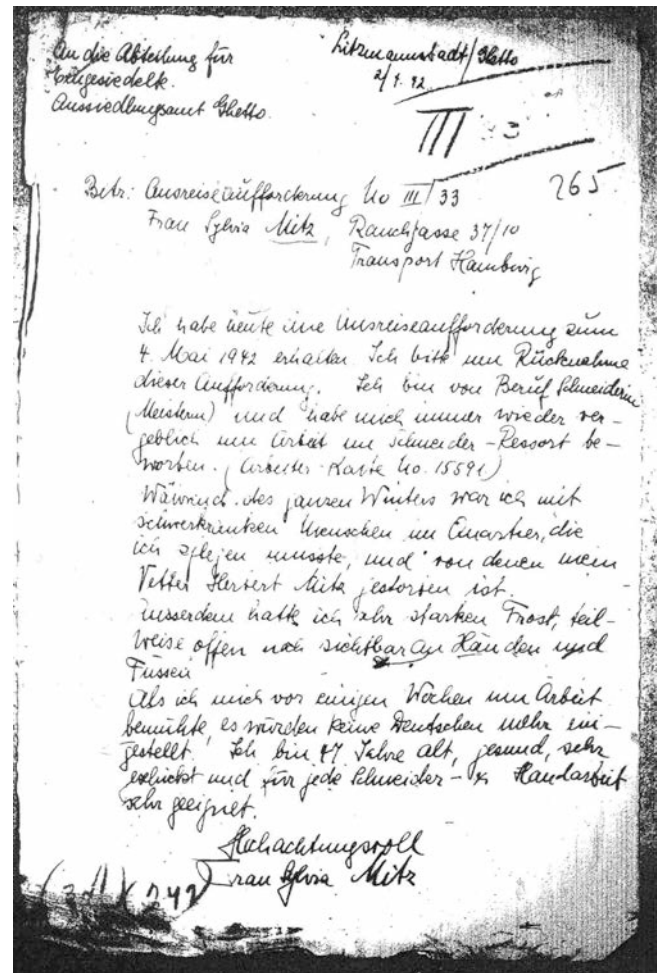 An die Abteilung für
Eingesiedelte.
Aussiedlungsamt Ghetto.
Litzmannstadt/Ghetto
2/ 42
III 33
265
Betr: Ausreiseaufforderung No III/33
Frau Sylvia Mitz, Rauchgasse 37/10
Transport Hamburg
Ich habe heute eine Ausreiseaufforderung zum
4. Mai 1942 erhalten. Ich bitte um Rücknahme
dieser Aufforderung. Ich bin von Beruf Schneiderin
(Meisterin) und habe mich immer wieder ver-
geblich um Arbeit im Schneider-Ressort be-
worben. (Arbeiter-Karte No. 15591)
Während des ganzen Winters war ich mit
schwerkranken Menschen im Quartier, die
ich pflegen musste, und von denen mein
Vetter Herbert Mitz gestorben ist.
Ausserdem hatte ich sehr starken Frost, teil-
weise offen noch sichtbar an Händen und
Füssen
Als ich mich vor einigen Wochen um Arbeit
bemühte, es würden keine Deutschen mehr ein-
gestellt. Ich bin 47 Jahre alt, gesund, sehr
geschickt und für jede Schneider- Handarbeit
sehr geeignet.
Hochachtungsvoll
Frau Sylvia Mitz